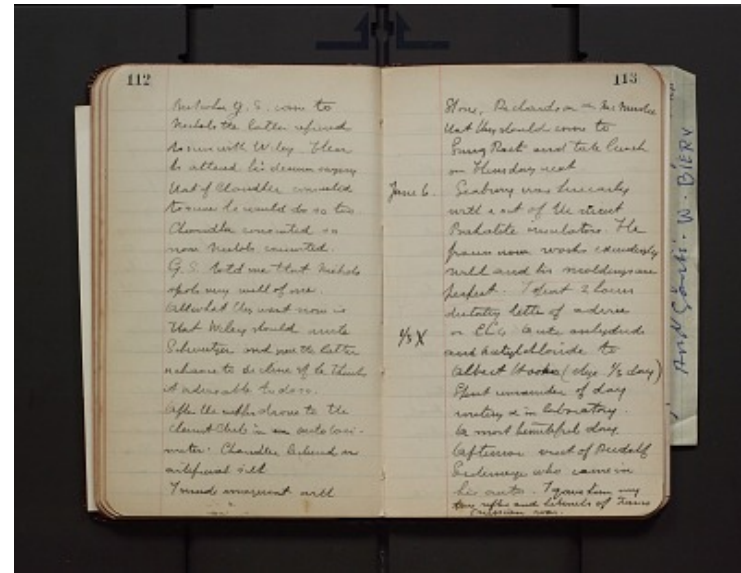 112
G. S. came to
Nichols the latter refused
to run with Wiley. Then
he altered his decision saying
that if Chandler consented
to serve he would do so too
Chandler consented so
now Nichols consented.
G. S. told me that Nichols
spoke very well of me.
All what they want now is
that Wiley should write
and give the latter
a chance to decline if he thinks
it advisable to do so.
After the drove to the
Chemist Club in an auto taxi-
meter. Chandler lectured on
artificial silk
I made with
113
Stone, Richardson
that they should come to
Snug Rock and take lunch
on Thursday next
June 6. Seabury was here early
with a set of the
Bakelite insulators. The
now works exceedingly
well and his moldings are
perfect. I spent 2 hours
dictating letter of advice
on
1/3 X and acetylchloride to
Albert (chge. 1/3 day)
Spent remainder of day
writing & in laboratory.
A most beautiful day
Afternoon visit of Rudolf
who came in
his auto. I gave him my
rifle and of Franco
war.
W. BIERY